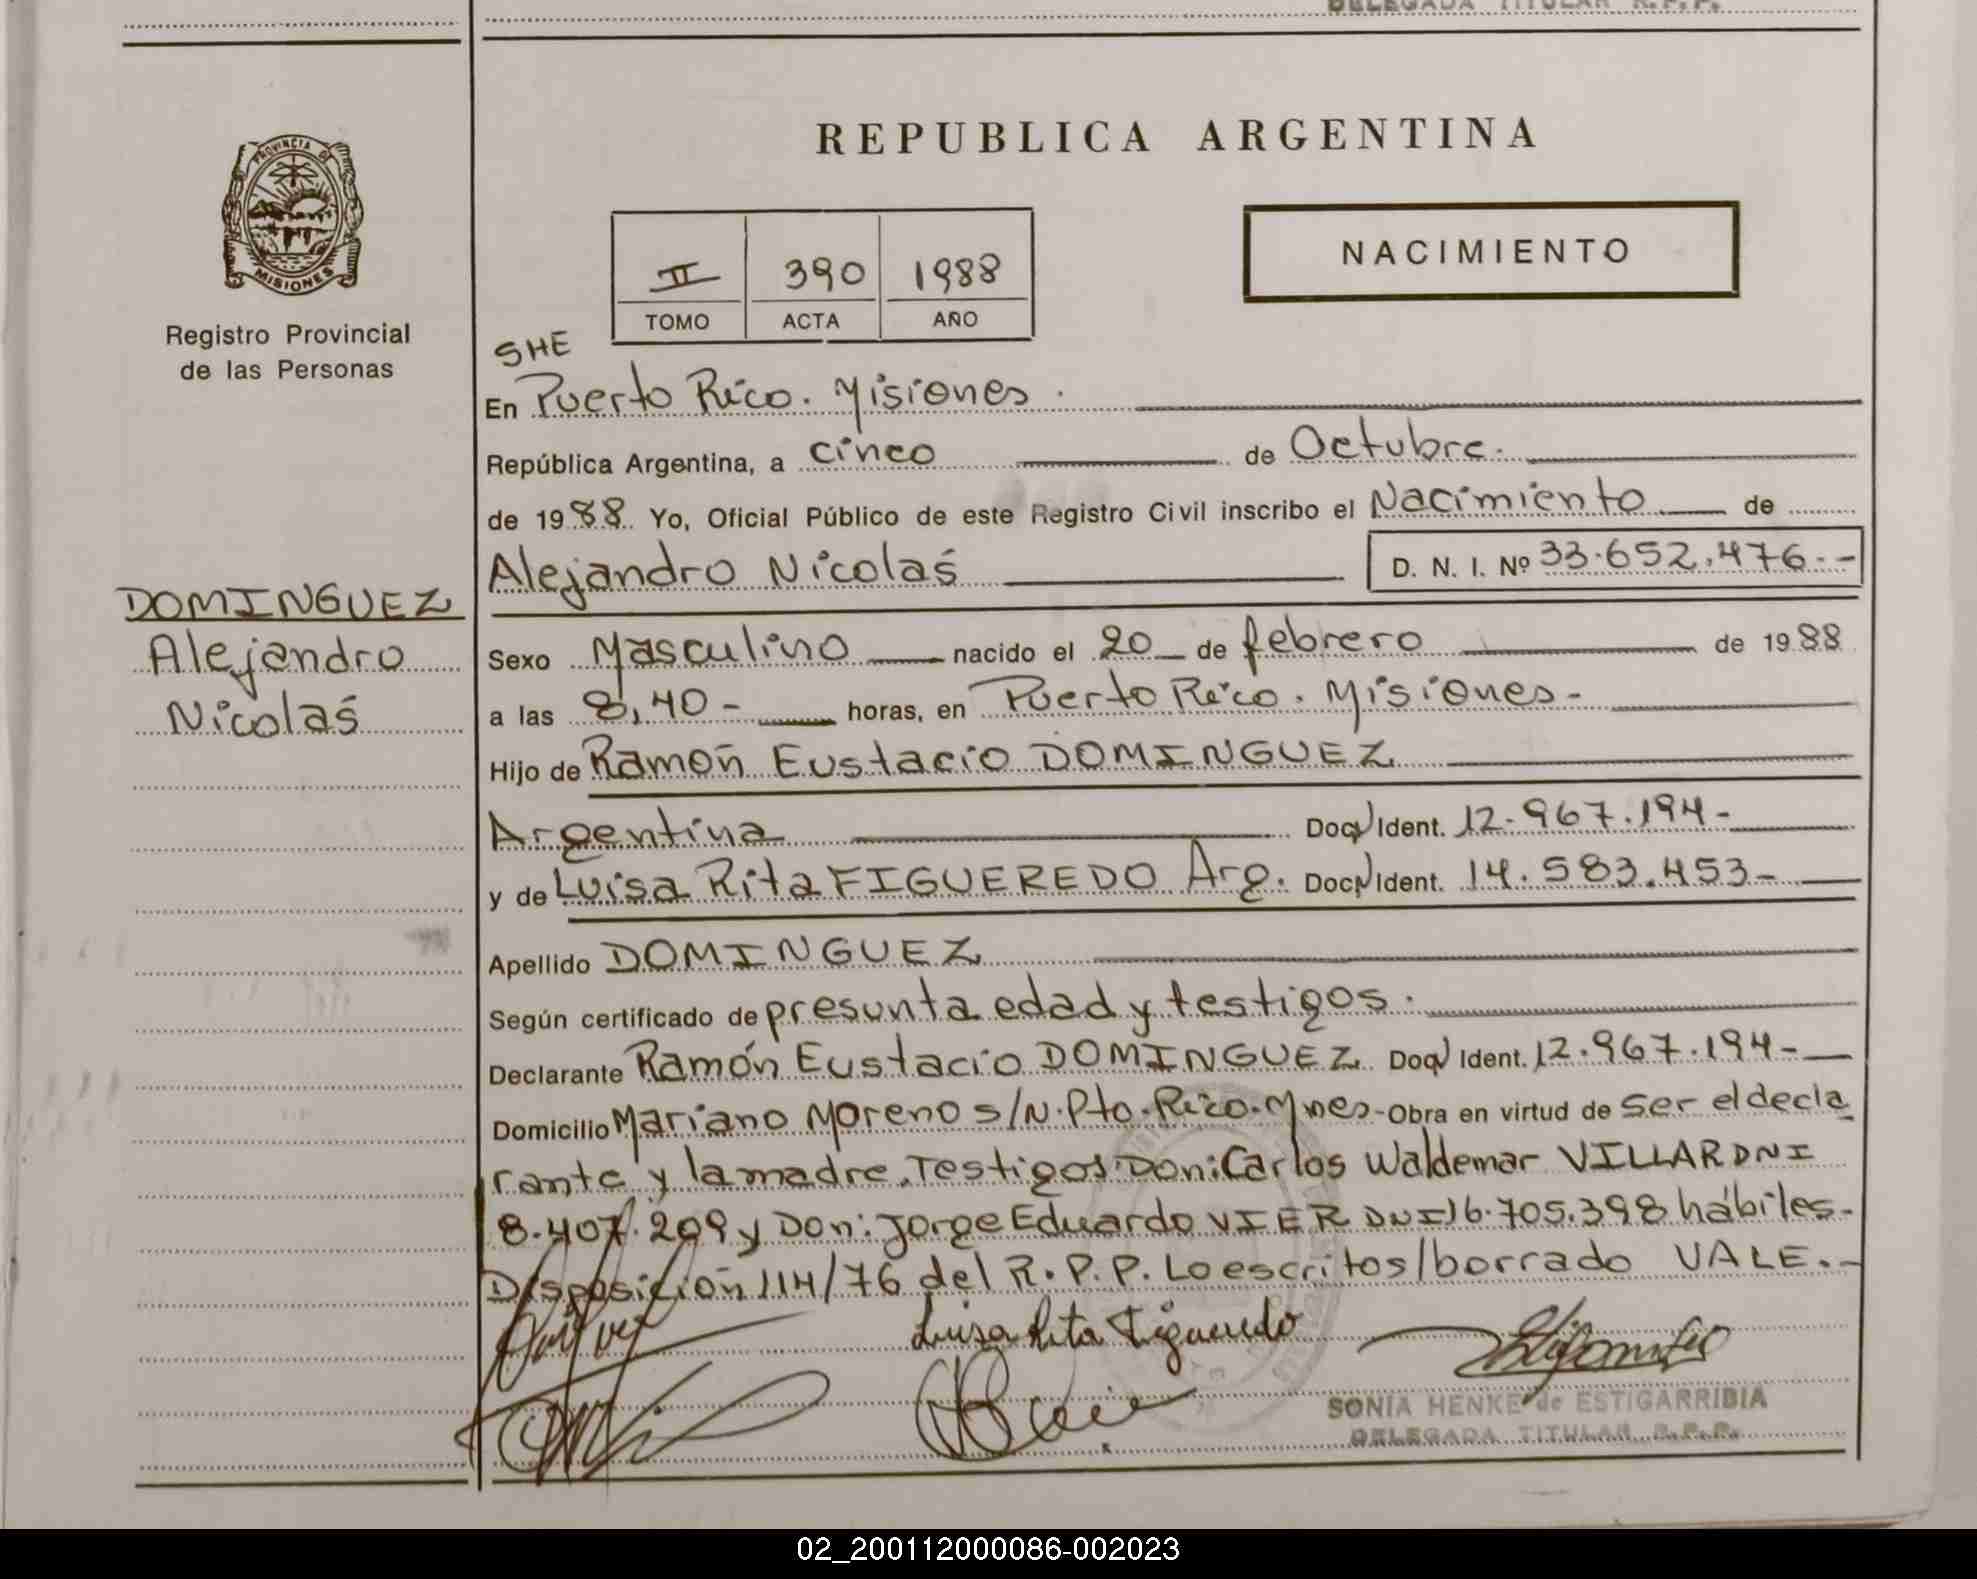 DELEGADA TITULAR R.P.P.
PROVINCIA DE
MISIONES
Registro Provincial
de las Personas
DOMINGUEZ
Alejandro
Nicolaś
REPUBLICA ARGENTINA
NACIMIENTO
II 390 1988
TOMO ACTA AÑO
SHE
En Puerto Rico. Misiones.
República Argentina, a cinco de Octubre.
de 1988. Yo, Oficial Público de este Registro Civil inscribo el Nacimiento de
Alejandro Nicolaś D. N. I. Nº 33.652.476.-
Sexo Masculino nacido el 20 de febrero de 1988
a las 8,40- horas, en Puerto Rico. Misiones-
Hijo de Ramón Eustacio DOMINGUEZ
Argentina Doc. Ident. 12.967.194-
y de Luisa Rita FIGUEREDO Arg. Doc. Ident. 14.583.453-
Apellido DOMINGUEZ
Según certificado de presunta edad y testigos.
Declarante Ramón Eustacio DOMINGUEZ Doc. Ident. 12.967.194-
Domicilio Mariano Moreno s/N. Pto. Rico. Mnes- Obra en virtud de ser el decla
rante y la madre. Testigos: Don: Carlos Waldemar VILLAR DNI
8.407.209 y Don: Jorge Eduardo VIER DNI 16.705.398 hábiles-
Disposición 114/76 del R.P.P. Lo escrito s/borrado VALE.-
Luisa Rita Figueredo
SONIA HENKE de ESTIGARRIBIA
DELEGADA TITULAR R.P.P.
02_200112000086-002023